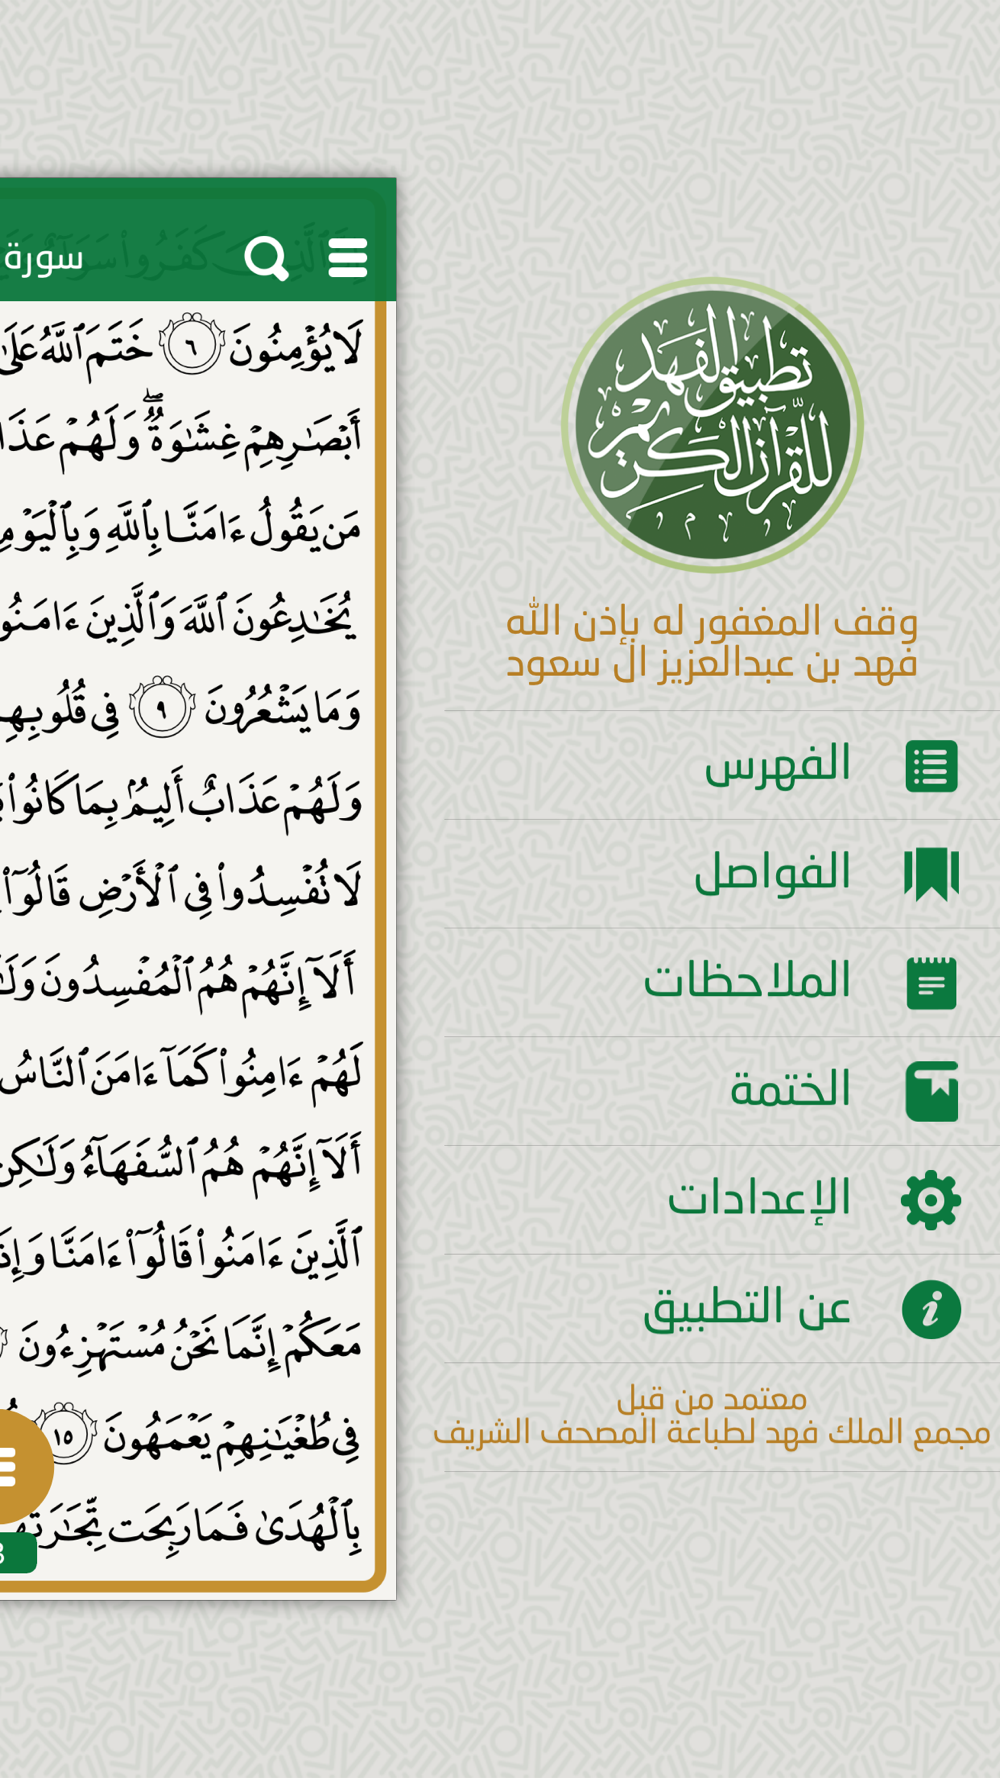 سورة
لَا يُؤْمِنُونَ ٦ خَتَمَ ٱللَّهُ عَلَىٰ
أَبْصَٰرِهِمْ غِشَٰوَةٌۖ وَلَهُمْ
مَن يَقُولُ ءَامَنَّا بِٱللَّهِ
يُخَٰدِعُونَ ٱللَّهَ وَٱلَّذِينَ
وَمَا يَشْعُرُونَ ٩ فِى
وَلَهُمْ عَذَابٌ أَلِيمٌۢ بِمَا كَانُوا۟
لَا تُفْسِدُوا۟ فِى ٱلْأَرْضِ قَالُوٓا۟
أَلَآ إِنَّهُمْ هُمُ ٱلْمُفْسِدُونَ
لَهُمْ ءَامِنُوا۟ كَمَآ ءَامَنَ ٱلنَّاسُ
أَلَآ إِنَّهُمْ هُمُ ٱلسُّفَهَآءُ وَلَٰكِن
ٱلَّذِينَ ءَامَنُوا۟ قَالُوٓا۟ ءَامَنَّا
مَعَكُمْ إِنَّمَا نَحْنُ مُسْتَهْزِءُونَ
فِى طُغْيَٰنِهِمْ يَعْمَهُونَ ١٥
بِٱلْهُدَىٰ فَمَا رَبِحَت
تطبيق الفهد
للقرآن الكريم
وقف المغفور له بإذن الله
فهد بن عبدالعزيز ال سعود
الفهرس
الفواصل
الملاحظات
الختمة
الإعدادات
عن التطبيق
معتمد من قبل
مجمع الملك فهد لطباعة المصحف الشريف